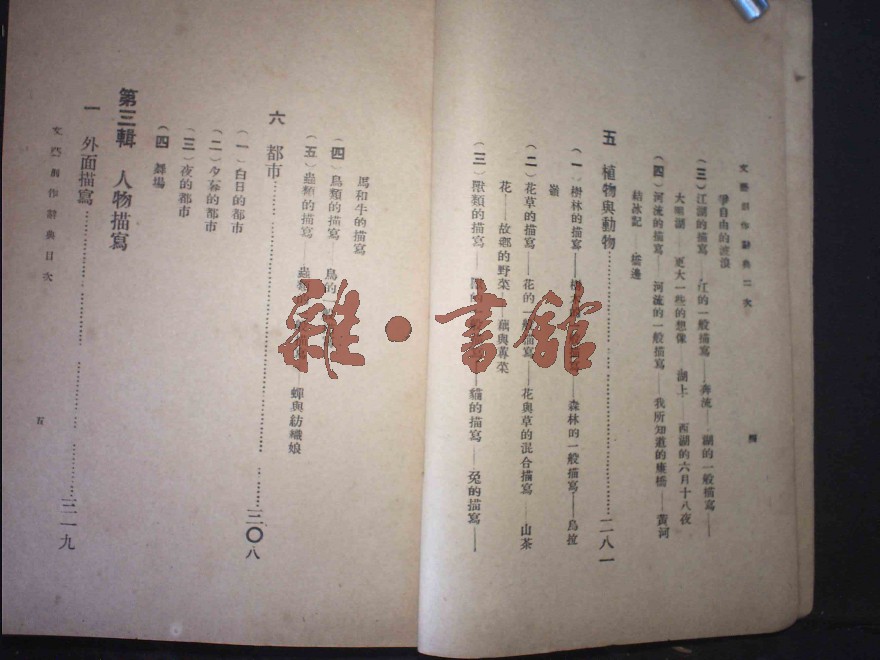 文藝創作辭典目次
爭自由的波浪
(三)江湖的描寫 江的一般描寫——奔流——湖的一般描寫——
大明湖——更大一些的想像——湖上——西湖的六月十八夜
(四)河流的描寫——河流的一般描寫——我所知道的康橋——黃河
結冰記——橋邊
四
五 植物與動物……二八一
(一)樹林的描寫 森林的一般描寫——烏拉
嶺
(二)花草的描寫——花的一般描寫——花與草的混合描寫——山茶
花——故鄉的野菜——藕與蓴菜
(三)獸類的描寫 貓的描寫——兔的描寫——
馬和牛的描寫
(四)鳥類的描寫——鳥的一般
(五)蟲類的描寫 蟬與紡織娘
六 都市……三〇八
(一)白日的都市
(二)夕暮的都市
(三)夜的都市
(四)舞場
第三輯 人物描寫
一 外面描寫……三一九
文藝創作辭典目次
五
雜·書館